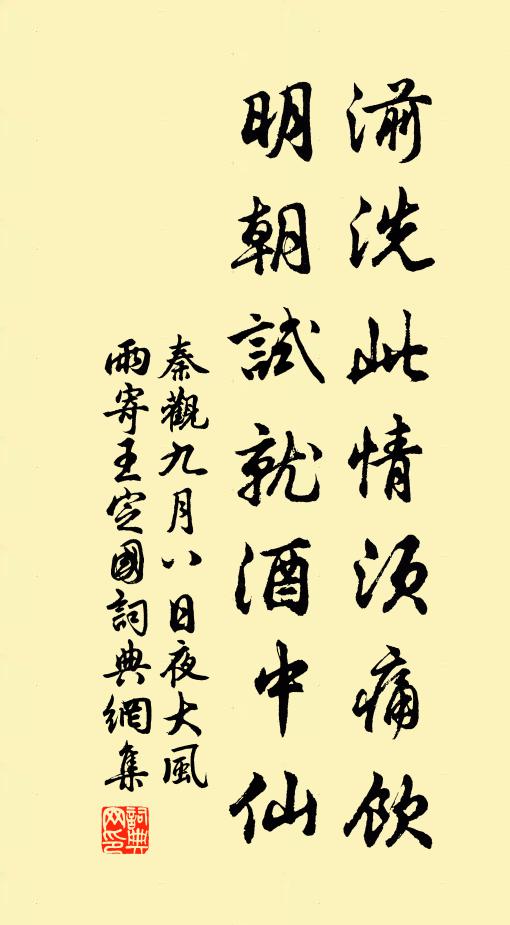 湔洗此情須痛飲
明朝試就酒中仙
秦觀九月八日夜大風
雨寄王定國詞典網集
詞典
网印